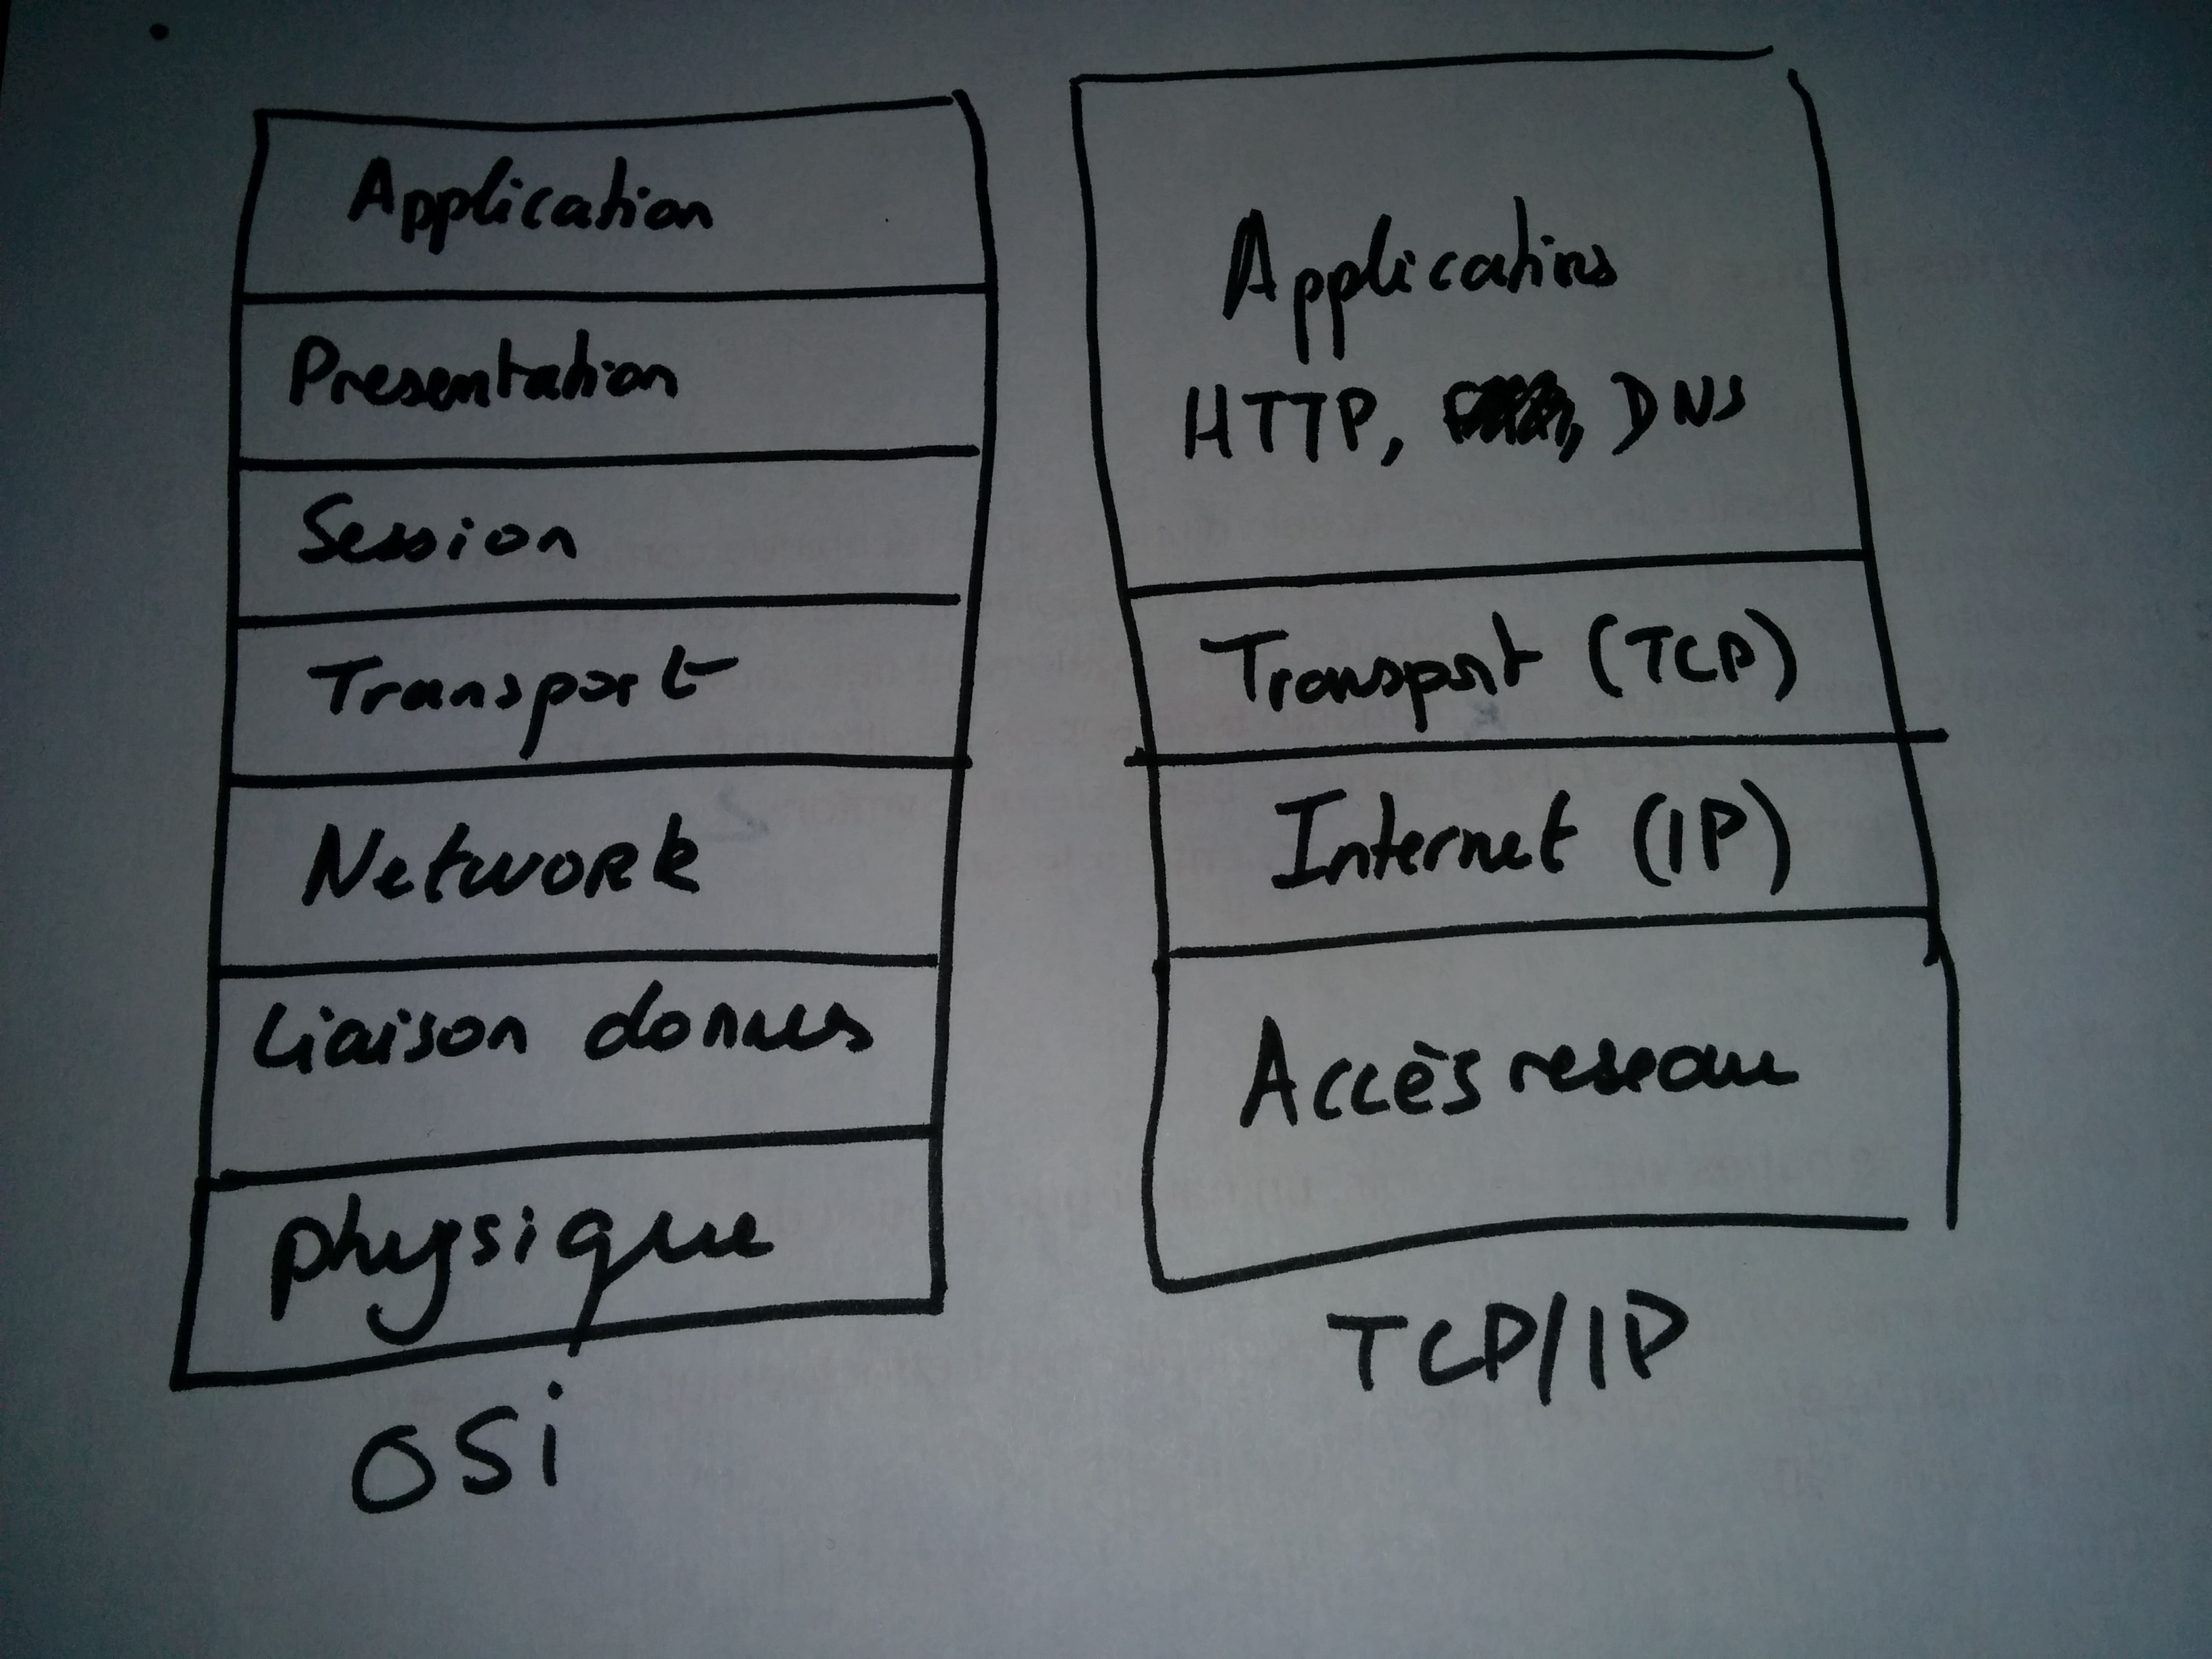 Application
Presentation
Session
Transport
Network
Liaison donnes
physique
OSi
Applications
HTTP, DNS
Transport (TCP)
Internet (IP)
Accès reseau
TCP/IP